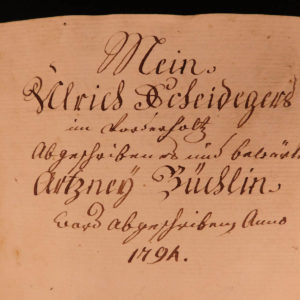 Mein
Ulrich Scheidegers
im Vorderholtz
Abgeschribenes und bewärt
Artzney Büchlin
ward abgeschriben, Anno
1794.